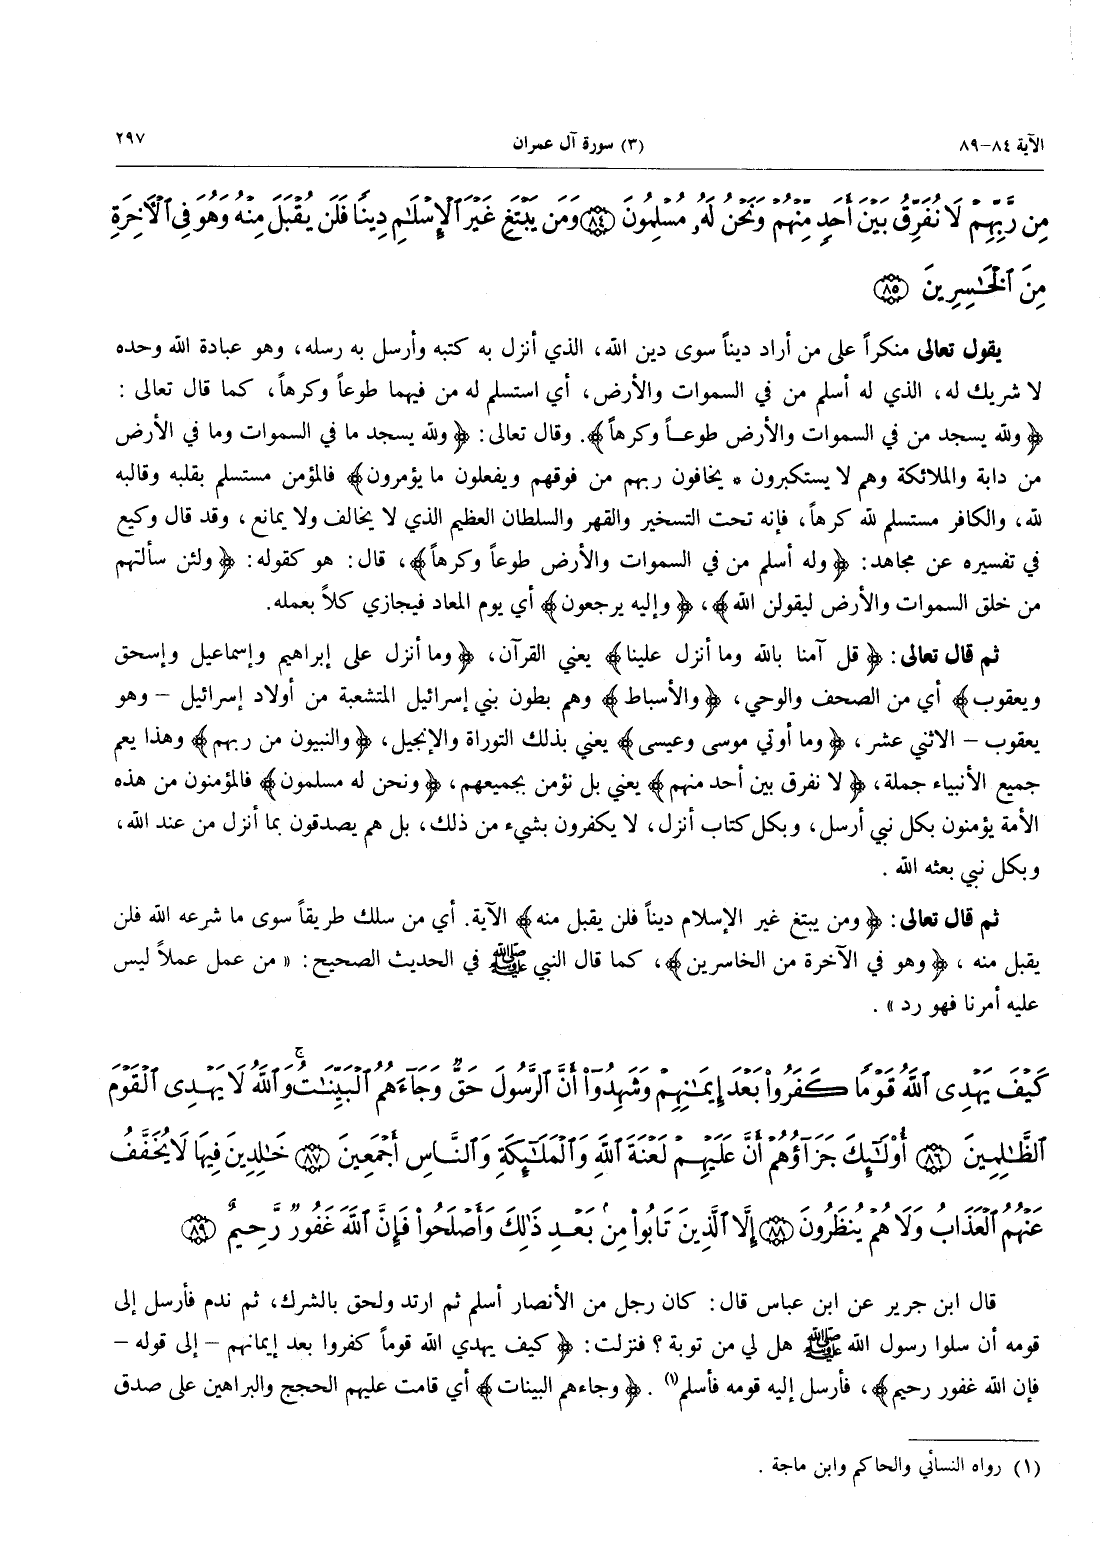 الآية ٨٤-٨٩ (٣) سورة آل عمران ٢٩٧
مِن رَّبِّهِمْ لَا نُفَرِّقُ بَيْنَ أَحَدٍ مِّنْهُمْ وَنَحْنُ لَهُۥ مُسْلِمُونَ ﴿٨٤﴾ وَمَن يَبْتَغِ غَيْرَ ٱلْإِسْلَٰمِ دِينًا فَلَن يُقْبَلَ مِنْهُ وَهُوَ فِى ٱلْأٓخِرَةِ
مِنَ ٱلْخَٰسِرِينَ ﴿٨٥﴾
يقول تعالى منكراً على من أراد ديناً سوى دين الله، الذي أنزل به كتبه وأرسل به رسله، وهو عبادة الله وحده
لا شريك له، الذي له أسلم من في السموات والأرض، أي استسلم له من فيهما طوعاً وكرهاً، كما قال تعالى :
﴿ولله يسجد من في السموات والأرض طوعاً وكرهاً﴾. وقال تعالى: ﴿ولله يسجد ما في السموات وما في الأرض
من دابة والملائكة وهم لا يستكبرون * يخافون ربهم من فوقهم ويفعلون ما يؤمرون﴾ فالمؤمن مستسلم بقلبه وقالبه
لله، والكافر مستسلم لله كرهاً، فإنه تحت التسخير والقهر والسلطان العظيم الذي لا يخالف ولا يمانع، وقد قال وكيع
في تفسيره عن مجاهد: ﴿وله أسلم من في السموات والأرض طوعاً وكرهاً﴾، قال: هو كقوله: ﴿ولئن سألتهم
من خلق السموات والأرض ليقولن الله﴾، ﴿وإليه يرجعون﴾ أي يوم المعاد فيجازي كلاً بعمله.
ثم قال تعالى: ﴿قل آمنا بالله وما أنزل علينا﴾ يعني القرآن، ﴿وما أنزل على إبراهيم وإسماعيل وإسحق
ويعقوب﴾ أي من الصحف والوحي، ﴿والأسباط﴾ وهم بطون بني إسرائيل المتشعبة من أولاد إسرائيل – وهو
يعقوب – الاثني عشر، ﴿وما أوتي موسى وعيسى﴾ يعني بذلك التوراة والإنجيل، ﴿والنبيون من ربهم﴾ وهذا يعم
جميع الأنبياء جملة، ﴿لا نفرق بين أحد منهم﴾ يعني بل نؤمن بجميعهم، ﴿ونحن له مسلمون﴾ فالمؤمنون من هذه
الأمة يؤمنون بكل نبي أرسل، وبكل كتاب أنزل، لا يكفرون بشيء من ذلك، بل هم يصدقون بما أنزل من عند الله،
وبكل نبي بعثه الله .
ثم قال تعالى: ﴿ومن يبتغ غير الإسلام ديناً فلن يقبل منه﴾ الآية. أي من سلك طريقاً سوى ما شرعه الله فلن
يقبل منه ، ﴿وهو في الآخرة من الخاسرين﴾، كما قال النبي ﷺ في الحديث الصحيح: « من عمل عملاً ليس
عليه أمرنا فهو رد » .
كَيْفَ يَهْدِى ٱللَّهُ قَوْمًا كَفَرُوا۟ بَعْدَ إِيمَٰنِهِمْ وَشَهِدُوٓا۟ أَنَّ ٱلرَّسُولَ حَقٌّ وَجَآءَهُمُ ٱلْبَيِّنَٰتُ ۚ وَٱللَّهُ لَا يَهْدِى ٱلْقَوْمَ
ٱلظَّٰلِمِينَ ﴿٨٦﴾ أُو۟لَٰٓئِكَ جَزَآؤُهُمْ أَنَّ عَلَيْهِمْ لَعْنَةَ ٱللَّهِ وَٱلْمَلَٰٓئِكَةِ وَٱلنَّاسِ أَجْمَعِينَ ﴿٨٧﴾ خَٰلِدِينَ فِيهَا لَا يُخَفَّفُ
عَنْهُمُ ٱلْعَذَابُ وَلَا هُمْ يُنظَرُونَ ﴿٨٨﴾ إِلَّا ٱلَّذِينَ تَابُوا۟ مِنۢ بَعْدِ ذَٰلِكَ وَأَصْلَحُوا۟ فَإِنَّ ٱللَّهَ غَفُورٌ رَّحِيمٌ ﴿٨٩﴾
قال ابن جرير عن ابن عباس قال: كان رجل من الأنصار أسلم ثم ارتد ولحق بالشرك، ثم ندم فأرسل إلى
قومه أن سلوا رسول الله ﷺ هل لي من توبة ؟ فنزلت: ﴿كيف يهدي الله قوماً كفروا بعد إيمانهم – إلى قوله –
فإن الله غفور رحيم﴾، فأرسل إليه قومه فأسلم(١) . ﴿وجاءهم البينات﴾ أي قامت عليهم الحجج والبراهين على صدق
(١) رواه النسائي والحاكم وابن ماجة .